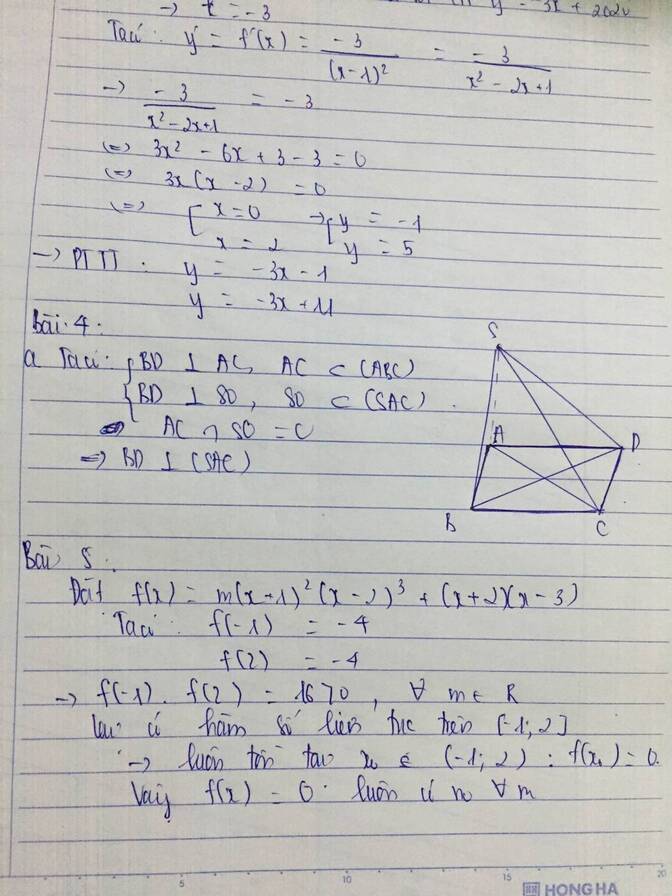 → x = -3
y = -3x + 2020
Ta có: y' = f'(x) = -3/(x-1)² = -3/(x² - 2x+1)
→ -3/(x²-2x+1) = -3
(=) 3x² - 6x + 3 - 3 = 0
(=) 3x(x - 2) = 0
(=) [x = 0 → [y = -1
x = 2 y = 5
→ PTTT: y = -3x - 1
y = -3x + 11
Bài 4:
a Ta có: {BD ⊥ AC, AC ⊂ (ABC)
{BD ⊥ SO, SO ⊂ (SAC).
AC ∩ SO = O
=> BD ⊥ (SAC)
S
A
D
B
C
Bài 5:
Đặt f(x) = m(x+1)²(x-2)³ + (x+2)(x-3)
Ta có: f(-1) = -4
f(2) = -4
→ f(-1). f(2) = 16 > 0, ∀ m ∈ R
Lại có hàm số liên tục trên [-1; 2]
→ luôn tồn tại x₀ ∈ (-1; 2) : f(x₀) = 0.
Vậy f(x) = 0 luôn có no ∀ m
5
10
15
20
HONG HA